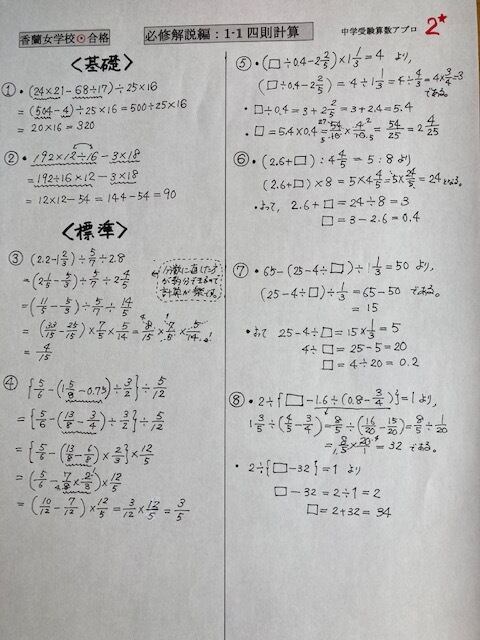 香蘭女学校◎合格
必修解説編：1-1四則計算
中学受験算数アプロ
2*
＜基礎＞
① • (24×21-68÷17)÷25×16
= (504-4)÷25×16=500÷25×16
= 20×16=320
② • 192×12÷16-3×18
= 192÷16×12-3×18
= 12×12-54=144-54=90
＜標準＞
③ (2.2-1 2/3)÷5/7÷2.8
= (2 1/5-5/3)÷5/7÷2 4/5
= (11/5-5/3)÷5/7÷14/5
= (33/15-25/15)×7/5×5/14=8/15×7/5×5/14
= 4/15
分数に直した方
が約分できるので
計算が楽です
④ {5/6-(1 5/8-0.75)÷3/2}÷5/12
= {5/6-(13/8-3/4)÷3/2}÷5/12
= {5/6-(13/8-6/8)×2/3}×12/5
= (5/6-7/8×2/3)×12/5
= (10/12-7/12)×12/5=3/12×12/5=3/5
⑤ • (□÷0.4-2 2/5)×1 1/3=4 より,
(□÷0.4-2 2/5)=4÷1 1/3=4÷4/3=4×3/4=3
である。
• □÷0.4=3+2 2/5=3+2.4=5.4
• □=5.4×0.4=54/10×4/10=54/25=2 4/25
⑥ • (2.6+□):4 4/5=5:8 より
(2.6+□)×8=5×4 4/5=5×24/5=24となる。
• よって, 2.6+□=24÷8=3
□=3-2.6=0.4
⑦ • 65-(25-4÷□)÷1 1/3=50 より,
(25-4÷□)÷1/3=65-50 である。
=15
• よって 25-4÷□=15×1/3=5
4÷□=25-5=20
□=4÷20=0.2
⑧ • 2÷{□-1.6÷(0.8-3/4)}=1より,
1 3/5÷(4/5-3/4)=8/5÷(16/20-15/20)=8/5÷1/20
=8/5×20/1=32 である。
• 2÷{□-32}=1 より
□-32=2÷1=2
□=2+32=34